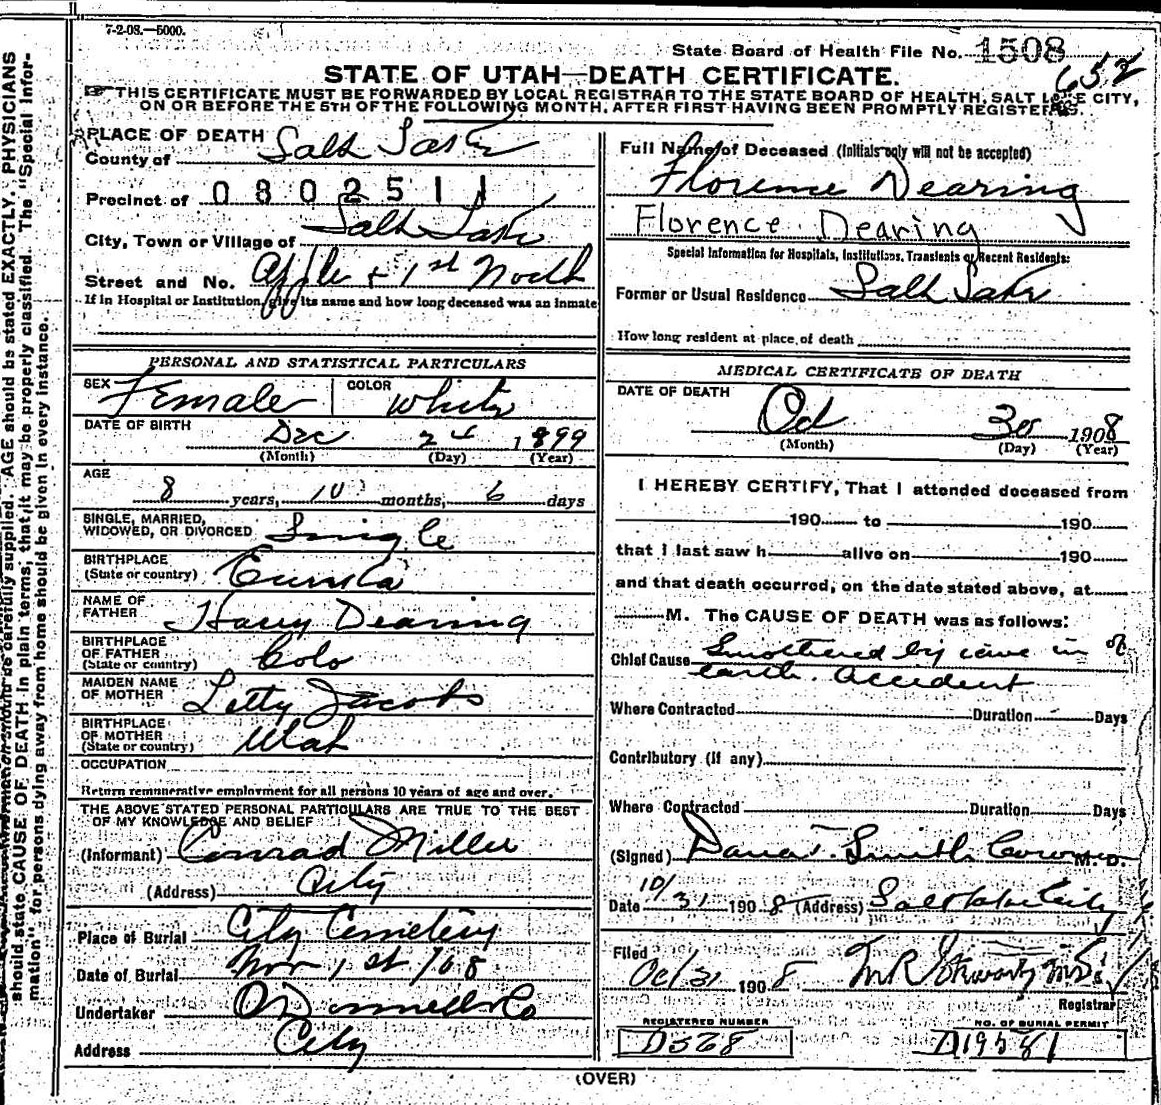 7-2-08.—5000.
State Board of Health File No. 1508
652
STATE OF UTAH—DEATH CERTIFICATE.
THIS CERTIFICATE MUST BE FORWARDED BY LOCAL REGISTRAR TO THE STATE BOARD OF HEALTH, SALT LAKE CITY,
ON OR BEFORE THE 5TH OF THE FOLLOWING MONTH, AFTER FIRST HAVING BEEN PROMPTLY REGISTERED.
PLACE OF DEATH
County of Salt Lake
Precinct of 0802511
City, Town or Village of Salt Lake
Street and No. Apple & 1st North
If in Hospital or Institution, give its name and how long deceased was an inmate
PERSONAL AND STATISTICAL PARTICULARS
SEX Female COLOR White
DATE OF BIRTH Dec 24 1899
(Month) (Day) (Year)
AGE
8 years, 10 months, 6 days
SINGLE, MARRIED,
WIDOWED, OR DIVORCED Single
BIRTHPLACE
(State or country) Eureka
NAME OF
FATHER Harry Dearing
BIRTHPLACE
OF FATHER
(State or country) Colo
MAIDEN NAME
OF MOTHER Letty Jacobs
BIRTHPLACE
OF MOTHER
(State or country) Utah
OCCUPATION
Return remunerative employment for all persons 10 years of age and over.
THE ABOVE STATED PERSONAL PARTICULARS ARE TRUE TO THE BEST
OF MY KNOWLEDGE AND BELIEF
(Informant) Conrad Miller
(Address) City
Place of Burial City Cemetery
Date of Burial Nov 1st /08
Undertaker O'Donnell & Co
Address City
Full Name of Deceased (Initials only will not be accepted)
Florence Dearing
Florence Dearing
Special Information for Hospitals, Institutions, Transients or Recent Residents:
Former or Usual Residence Salt Lake
How long resident at place of death
MEDICAL CERTIFICATE OF DEATH
DATE OF DEATH
Oct 30 1908
(Month) (Day) (Year)
I HEREBY CERTIFY, That I attended deceased from
190 to 190
that I last saw h alive on 190
and that death occurred, on the date stated above, at
M. The CAUSE OF DEATH was as follows:
Chief Cause Smothered by cave in of
earth. Accident
Where Contracted Duration Days
Contributory (if any)
Where Contracted Duration Days
(Signed) Dana T. Smith Coroner M.D.
Date 10/31 1908 (Address) Salt Lake City
Filed
Oct 31 1908 M.D.
Registrar
REGISTERED NUMBER
D368
NO. OF BURIAL PERMIT
D19581
(OVER)
should state CAUSE OF DEATH in plain terms, that it may be properly classified. The "Special Infor-
mation" for persons dying away from home should be given in every instance.
carefully supplied. AGE should be stated EXACTLY. PHYSICIANS